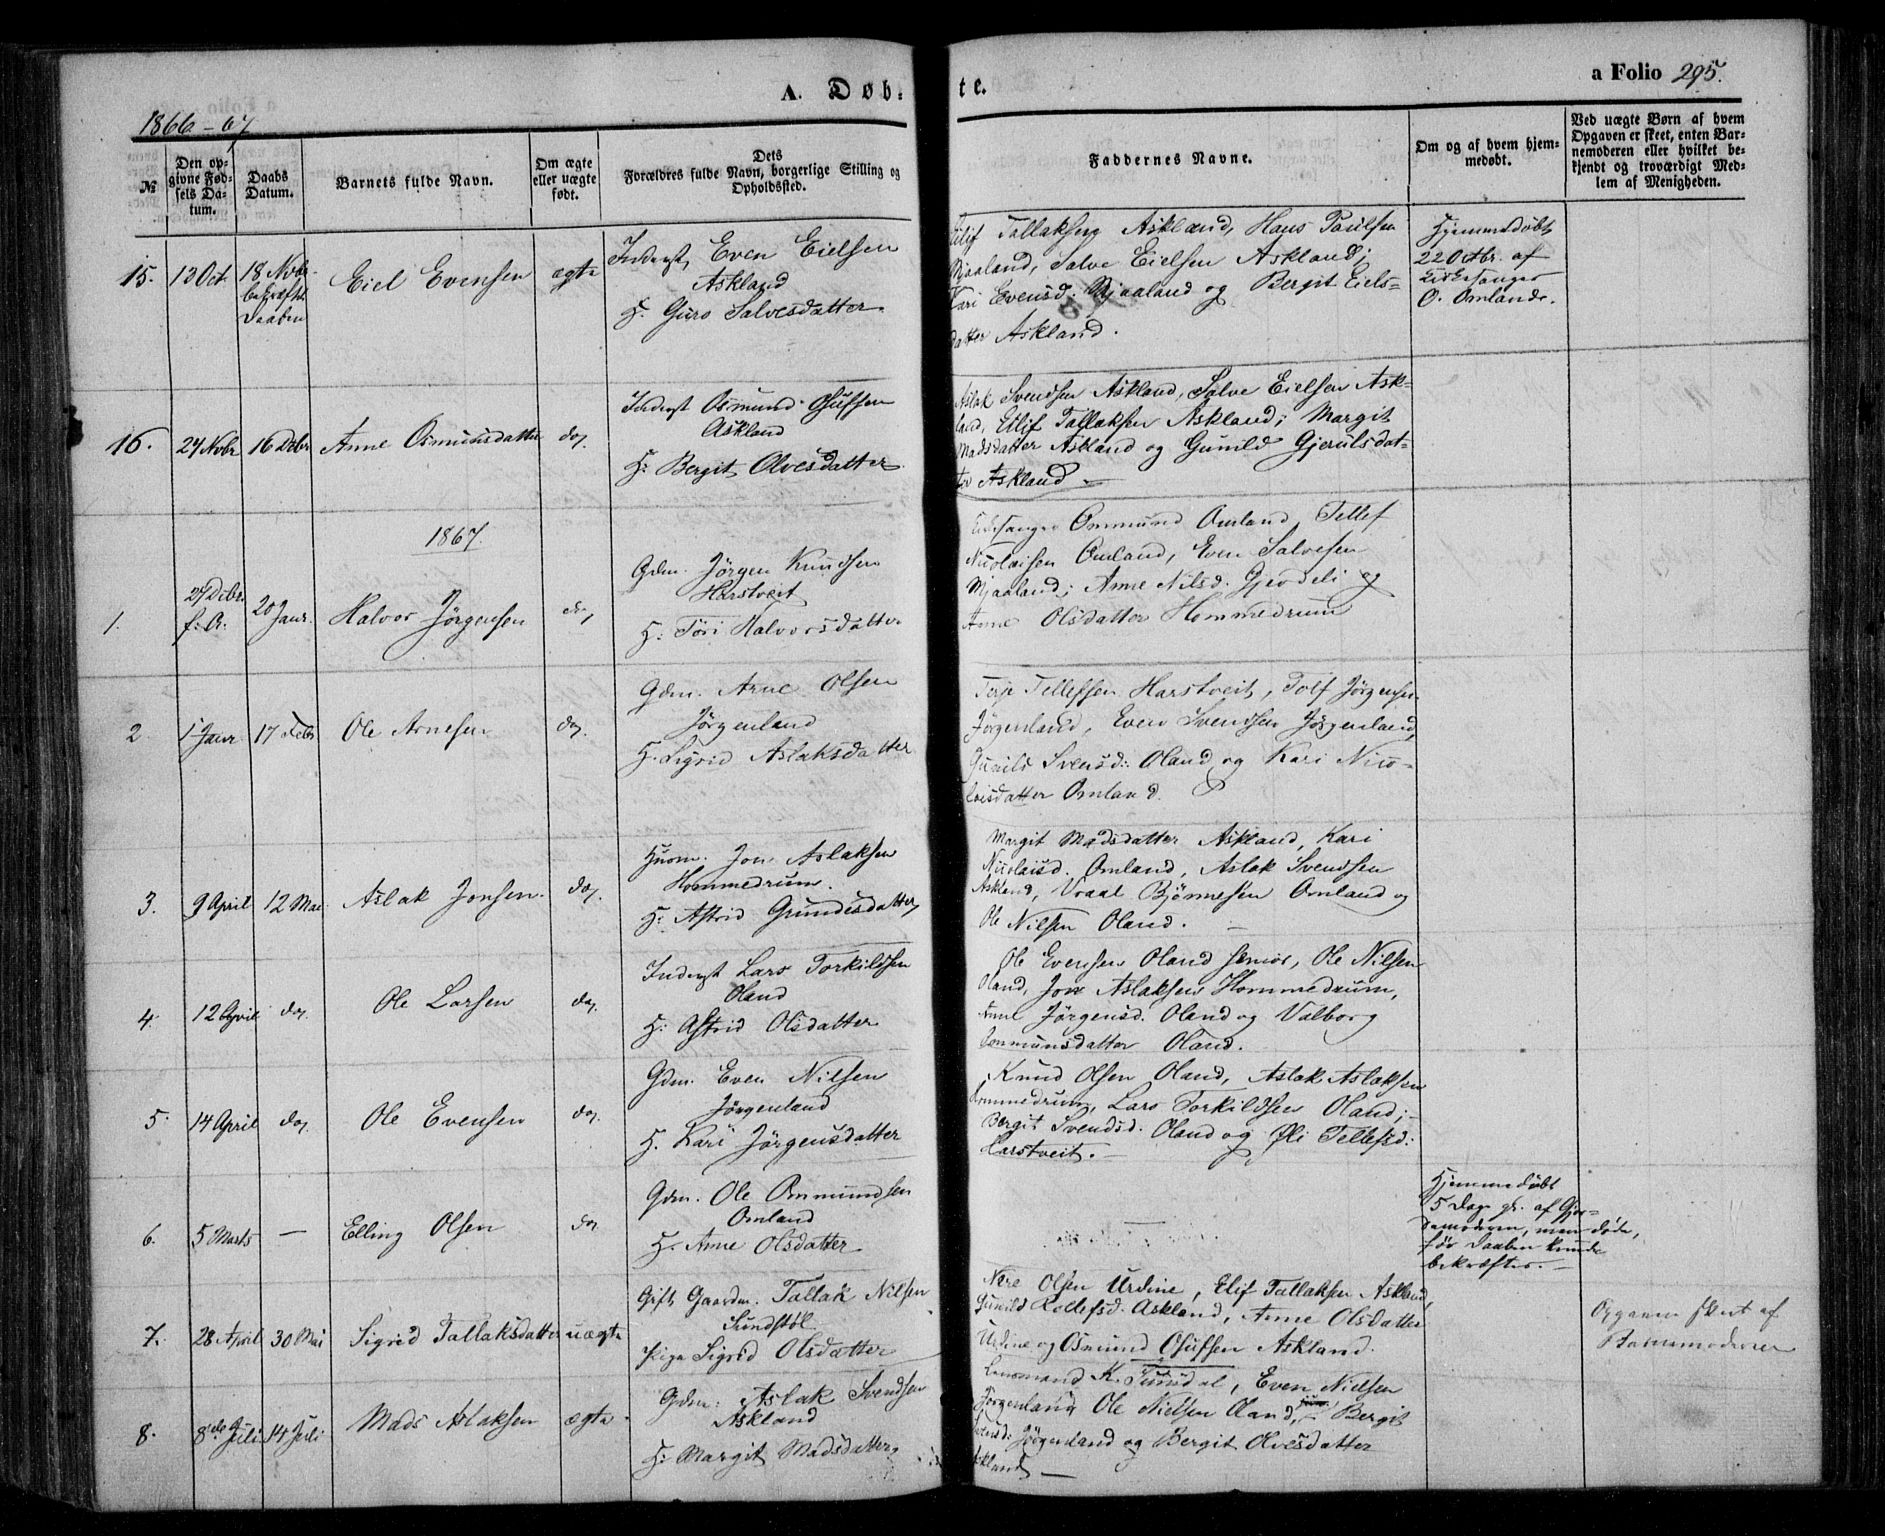 A. Døb-
te.
a Folio 295.
1866-67
№
Den op-
givne Fød-
sels Da-
tum.
Daabs
Datum.
Barnets fulde Navn.
Om ægte
eller uægte
født.
Dets
Forældres fulde Navn, borgerlige Stilling og
Opholdssted.
Faddernes Navne.
Om og af hvem hjem-
medøbt.
Ved uægte Børn af hvem
Opgaven er skeet, enten Bar-
nemoderen eller hvilket be-
kjendt og troværdigt Med-
lem af Menigheden.
15.
13 Oct.
18 Novbr.
bekræftet
Daaben
Eiel Evensen
ægte
Inderst Even Eielsen
Askland
H. Guro Salvesdatter
Eilif Tallaksen Askland, Hans Paulsen
Mjaaland, Salve Eielsen Askland;
Kari Evensd: Mjaaland og Bergit Eiels-
datter Askland.
Hjemmedøbt
22 Octbr. af
Kirkesanger
O. Omland.
16.
24 Novbr
16 Decbr
Anne Osmundsdatter
do.
Inderst Osmund Osufsen
Askland
H: Bergit Olvesdatter
Aslak Svendsen Askland, Salve Eielsen Ask-
land, Eilif Tallaksen Askland; Margit
Madsdatter Askland og Gunild Gjerulsdat-
ter Askland
1867.
1.
27 Decbr.
f: A.
20 Janr.
Halvor Jörgensen
do.
Gdm. Jörgen Knudsen
Harstveit
H: Töri Halvorsdatter
Kirkesanger Ommund Omland, Tellef
Nicolaisen Omland, Even Salvesen
Mjaaland; Anne Nilsd. Gjerdeli og
Anne Olsdatter Hommedrum
2
1 Janr
17 Febr
Ole Arnesen
do.
Gdm. Arne Olsen
Jörgenland
H. Sigrid Aslaksdatter
Terje Tellefsen Harstveit, Tolf Jörgensen
Jörgenland, Even Svendsen Jörgenland,
Gunild Svensd: Oland og Kari Nico-
laisdatter Omland.
3.
9 April
12 Mai
Aslak Jonsen
do.
Huusm. Jon Aslaksen
Hommedrum.
H: Astrid Gundesdatter
Margit Madsdatter Askland, Kari
Nicolaisd. Omland, Aslak Svendsen
Askland, Vraal Bjönnesen Omland og
Ole Nilsen Oland.
4.
12 April
do.
Ole Larsen
do.
Inderst Lars Torkildsen
Oland
H: Astrid Olsdatter
Ole Evensen Oland senior, Ole Nilsen
Oland, Jon Aslaksen Hommedrum,
Anne Jörgensd. Oland og Valborg
Ommundsdatter Oland.
5.
14 April
do.
Ole Evensen
do.
Gdm. Even Nilsen
Jörgenland
H. Kari Jörgensdatter
Knud Olsen Oland, Aslak Aslaksen
Hommedrum, Lars Torkildsen Oland;
Bergit Svendsd. Oland og Öli Tellefsd:
Harstveit.
6.
5 Marts
—
Elling Olsen
do
Gdm. Ole Ommundsen
Omland
H. Anne Olsdatter
Hjemmedøbt
5 Dage gl. af Gjor-
demoderen, men døde,
før Daaben kunde
bekræftes.
7.
28 April
30 Mai
Sigrid Tallaksdatter
uægte
Gift Gaardm. Tallak Nilsen
Sundstöl
Pige Sigrid Olsdatter
Nere Olsen Urdine, Elif Tallaksen Askland,
Gunild Rollefsd. Askland, Anne Olsdatter
Urdine og Osmund Osufsen Askland.
Opgaven skeet af
Barnemoderen
8.
8de Juli
14 Juli
Mads Aslaksen
ægte
Gdm: Aslak Svendsen
Askland
H: Margit Madsdatter
Lensmand K. Tunsdal, Even Nielsen
Jörgenland, Ole Nielsen Oland, Bergit
Svensd: Jörgenland og Bergit Olvesdatter
Askland